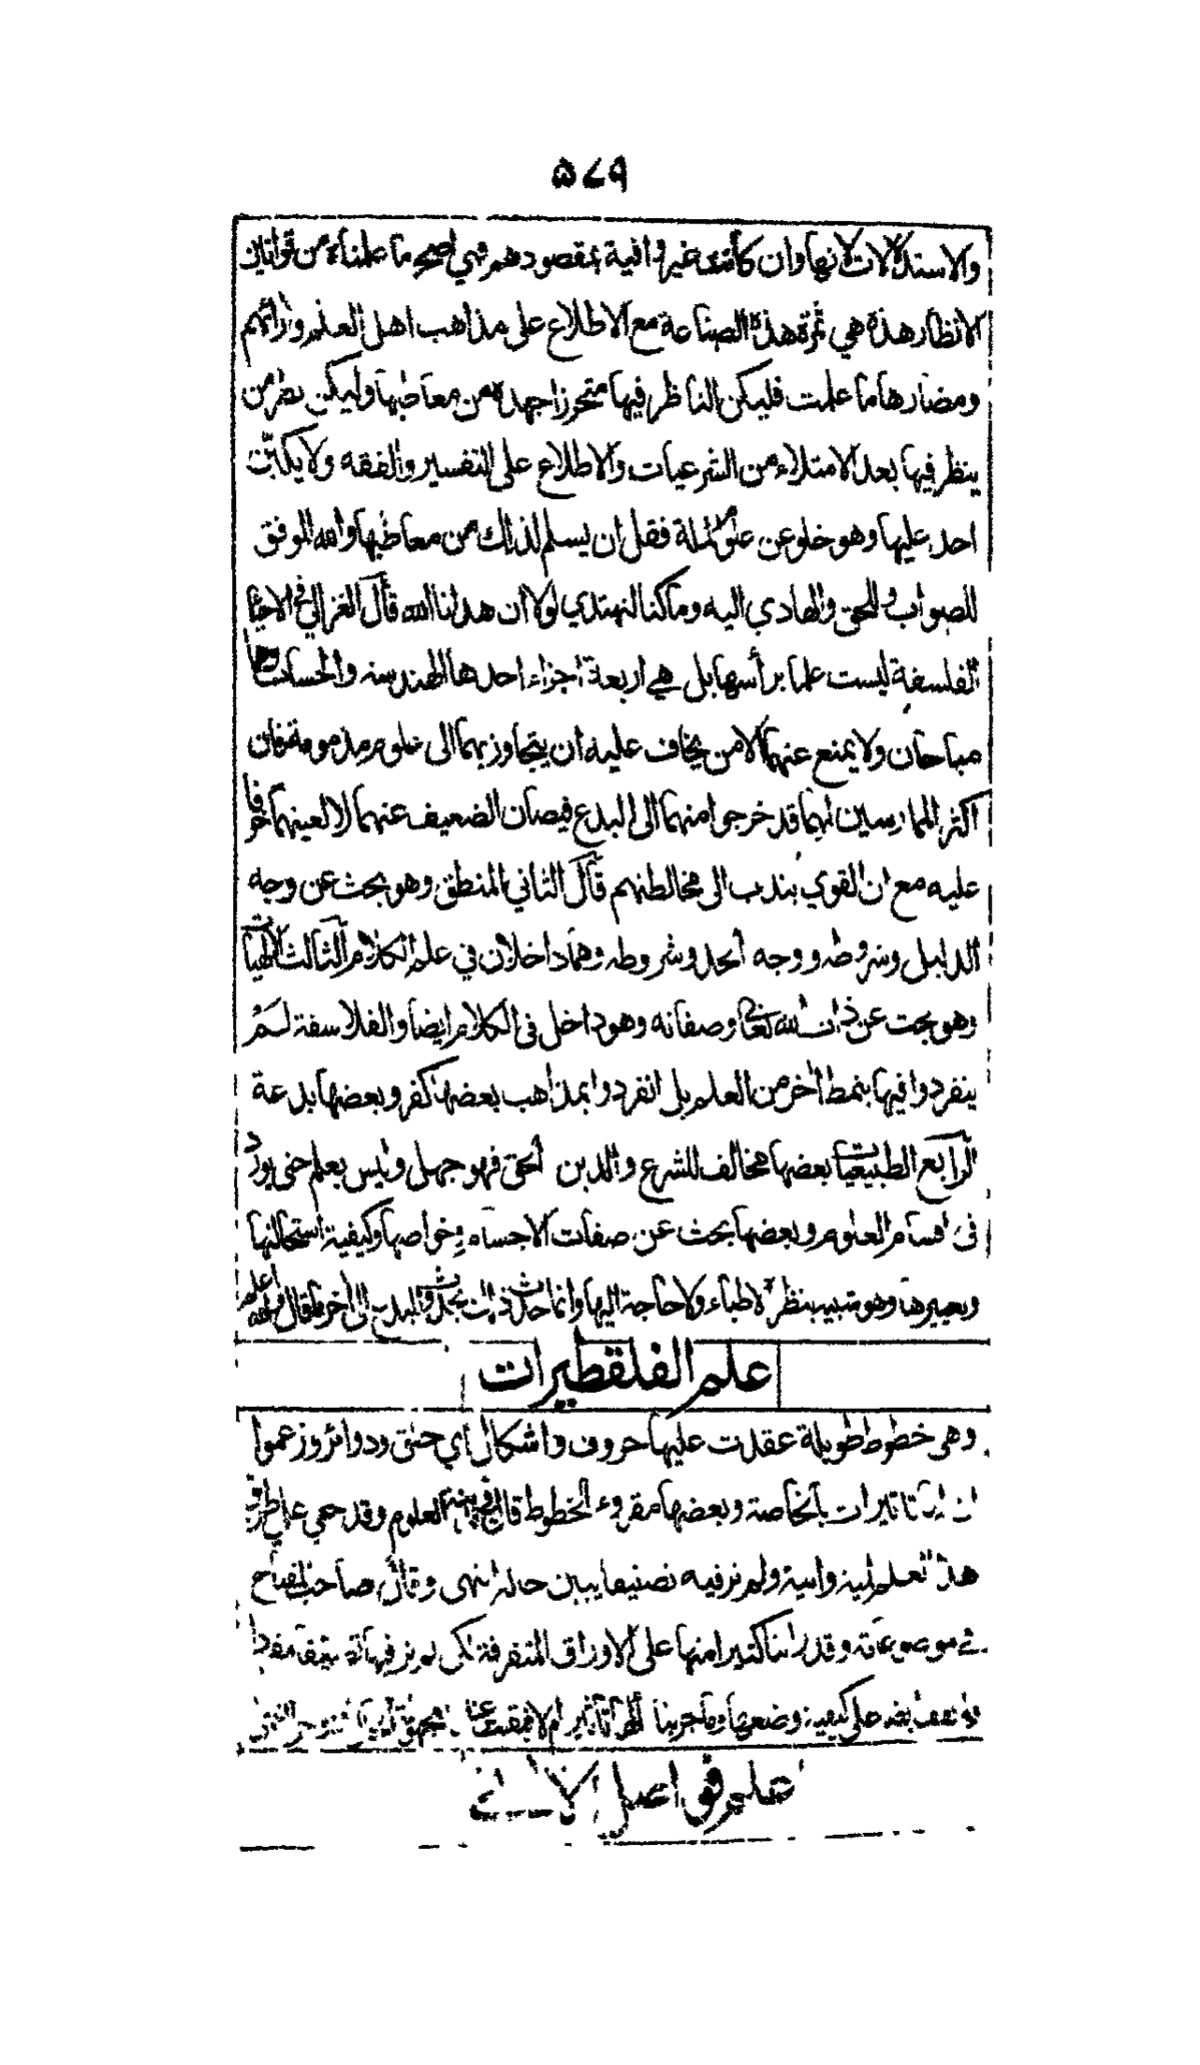 ۵۷۹
والاستدلالات لانها وان كانت غير وافية بمقصودهم فهي اصح ما علمناه من قوانين
الانظار هذه هي ثمرة هذه الصناعة مع الاطلاع على مذاهب اهل العلم وارائهم
ومضارها ما علمت فليكن الناظر فيها متحرزا جهده من معاطبها وليكن نظر من
ينظر فيها بعد الامتلاء من الشرعيات والاطلاع على التفسير والفقه ولا يكبّن
احد عليها وهو خلو عن علوم الملة فقل ان يسلم لذلك من معاطبها والله الموفق
للصواب وللحق والهادي اليه وما كنا لنهتدي لولا ان هدانا الله قال الغزالي في الاحياء
الفلسفة ليست علما برأسها بل هي اربعة اجزاء احدها الهندسة والحساب وهما
مباحان ولا يمنع عنهما الا من يخاف عليه ان يتجاوز بهما الى علوم مذمومة فان
اكثر الممارسين لهما قد خرجوا منهما الى البدع فيصان الضعيف عنهما لا لعينهما خوفا
عليه مع ان القوي يندب الى مخالطتهم قال الثاني المنطق وهو بحث عن وجه
الدليل وشروطه ووجه الحد وشروطه وهما داخلان في علم الكلام الثالث الالهيات
وهو بحث عن ذات الله تعالى وصفاته وهو داخل في الكلام ايضا والفلاسفة لم
ينفردوا فيها بنمط اخر من العلم بل انفردوا بمذاهب بعضها كفر وبعضها بدعة
الرابع الطبيعيات بعضها مخالف للشرع والدين الحق فهو جهل وليس بعلم حتى يورد
في اقسام العلوم وبعضها بحث عن صفات الاجسام وخواصها وكيفية استحالتها
وتغييرها وهو شبيه بنظر الاطباء ولا حاجة اليها وانما حدثت البدع الى اخر ما قال والله اعلم
علم الفلقطيرات
وهي خطوط طويلة عقدت عليها حروف واشكال اي حلق ودوائر وزعموا
ان لها تاثيرات بالخاصة وبعضها مقروء الخطوط قال في مدينة العلوم وقد
هذا ولم نر فيه تصنيفا يبين حاله انتهى وقال صاحب المفتاح
في موضوعاته وقد راينا كثيرا منها على الاوراق المتفرقة لكن لم نر فيها تصنيفا مفردا
ولم نقف بعد على كيفية وضعها وما جربنا
علم فواصل الآي